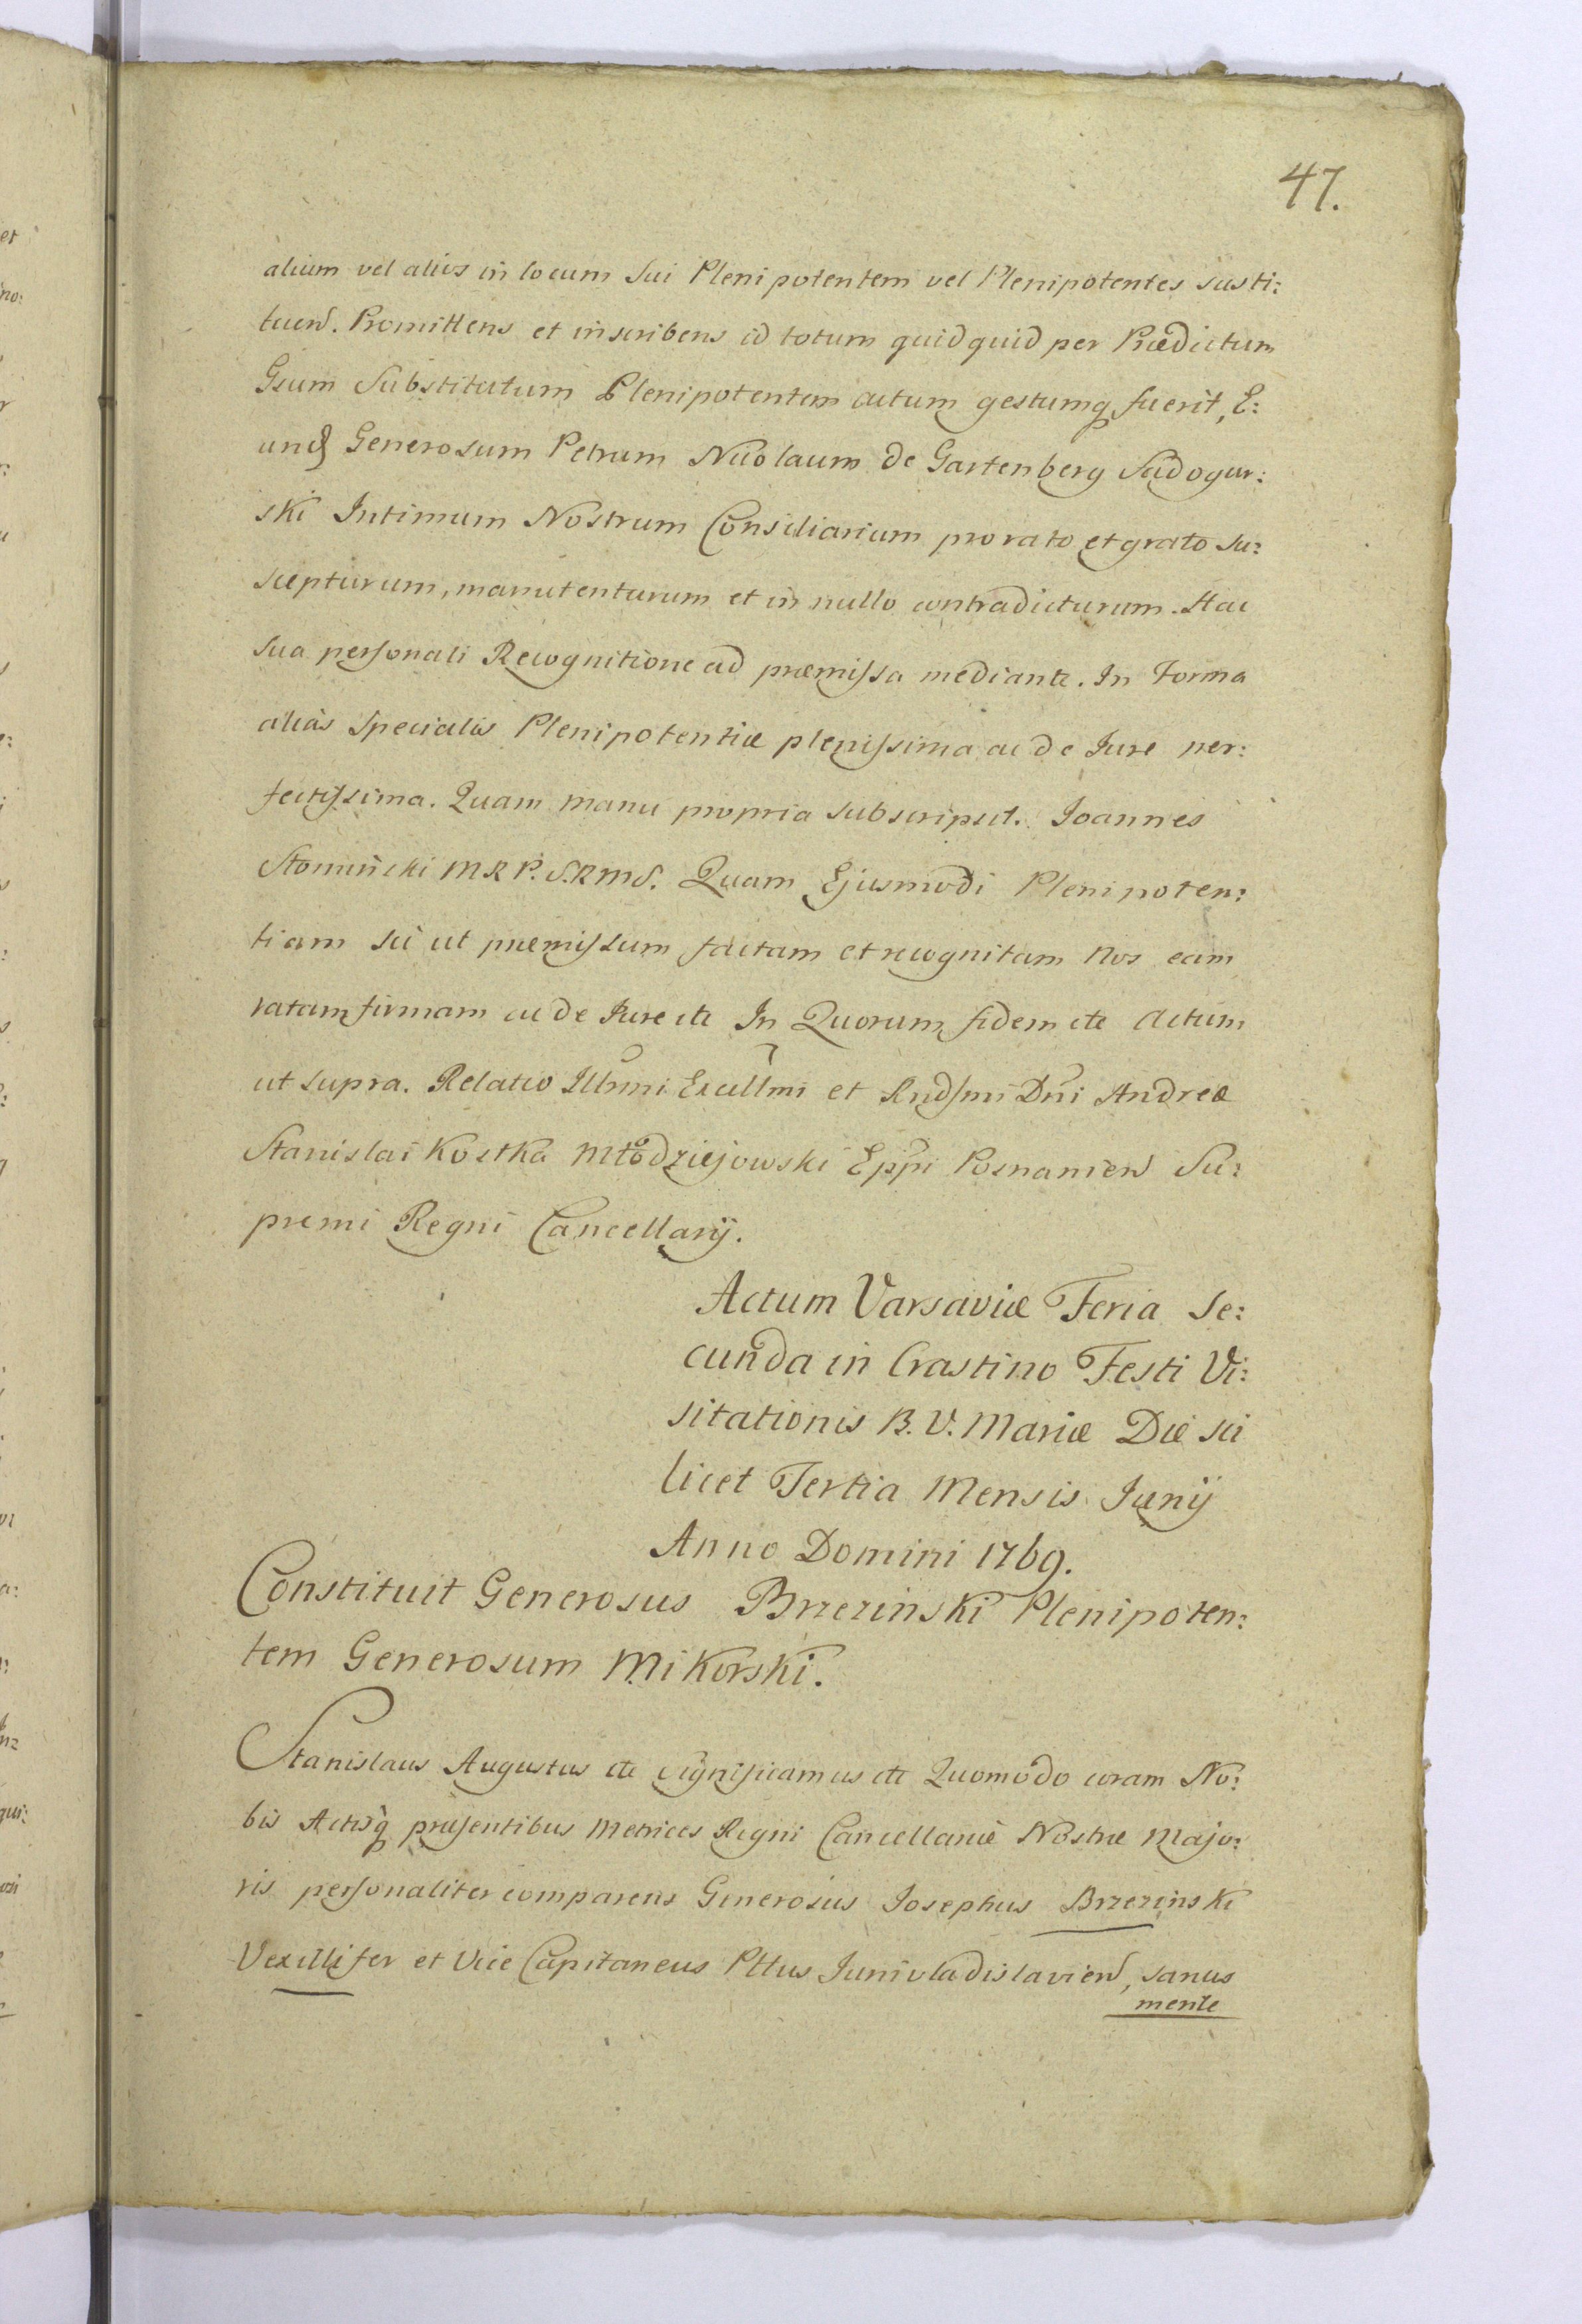 47.
alium vel alios in locum Sui Plenipotentem vel Plenipotentes susti:
tuend. Promittens et inscribens id totum quidquid per Prædictum
Gsum Substitutum Plenipotentem actum gestumq fuerit, E:
und Generosum Petrum Nicolaum de Gartenberg Sadogur:
ski Intimum Nostrum Consiliarium pro rato et grato su:
scepturum, manutenturum et in nullo contradicturum. Hac
sua personali Recognitione ad præmissa mediante. In Forma
aliàs specialis Plenipotentiæ plenissima ac de Iure per:
fectissima. Quam manu propria subscripsit. Joannes
Słomiński M R P. S.R M S. Quam Ejusmodi Plenipoten:
tiam sic ut præmissum factam et recognitam Nos eam
ratam firmam ac de Iure etc In Quorum fidem etc Actum
ut supra. Relatio Illmi Excellmi et Rndsmi Dni Andreæ
Stanislai Kostka Młodziejowski Eppi Posnanien Su:
premi Regni Cancellarij.
Actum Varsaviæ Feria Se:
cunda in Crastino Festi Vi:
sitationis B. V. Mariæ Die sci
licet Tertia Mensis Junij
Anno Domini 1769.
Constituit Generosus Brzezinski Plenipoten:
tem Generosum Mikorski.
Stanislaus Augustus etc Significamus etc Quomodo coram No:
bis Actisq præsentibus Metrices Regni Cancellariæ Nostræ Majo:
ris personaliter comparens Generosus Josephus Brzezinski
Vexillifer et Vice Capitaneus Pttus Junivladislavien, sanus
mente